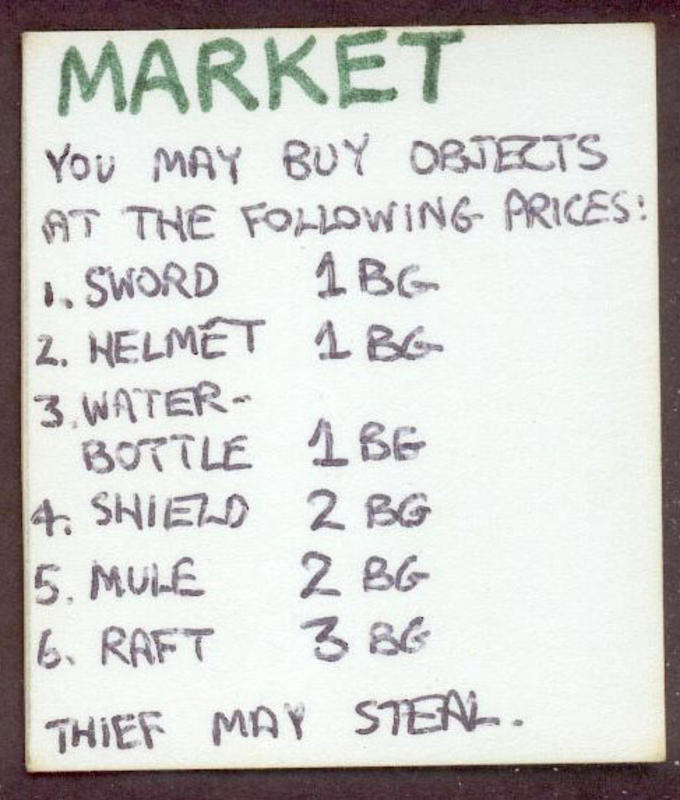 MARKET
YOU MAY BUY OBJECTS
AT THE FOLLOWING PRICES:
1. SWORD 1 BG
2. HELMET 1 BG
3. WATER-
BOTTLE 1 BG
4. SHIELD 2 BG
5. MULE 2 BG
6. RAFT 3 BG
THIEF MAY STEAL.